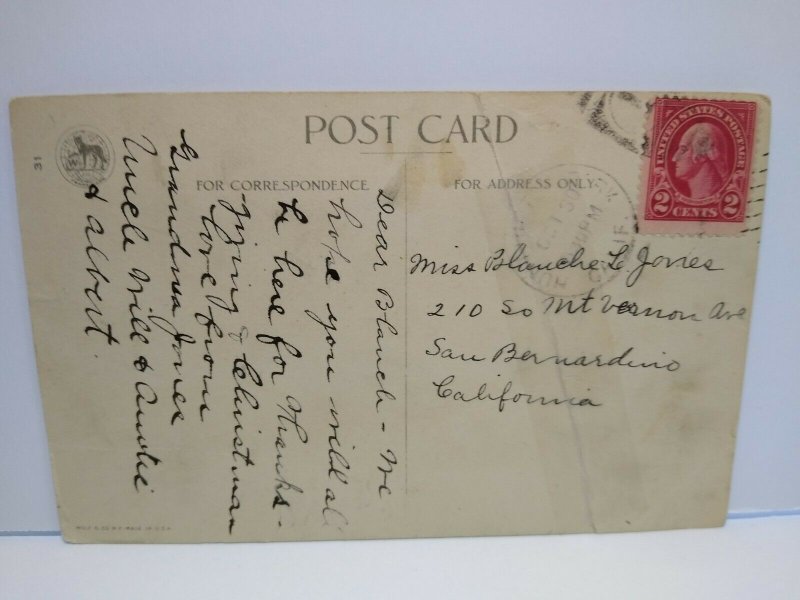 POST CARD
FOR CORRESPONDENCE
FOR ADDRESS ONLY
31
UNITED STATES POSTAGE
2 CENTS 2
Dear Blanch - We
hope you will all
be here for Thanks-
giving & Christmas
love from
Grandma Jones
Uncle Will & Auntie
& Albert.
Miss Blanche L. Jones
210 So Mt Vernon Ave
San Bernardino
California